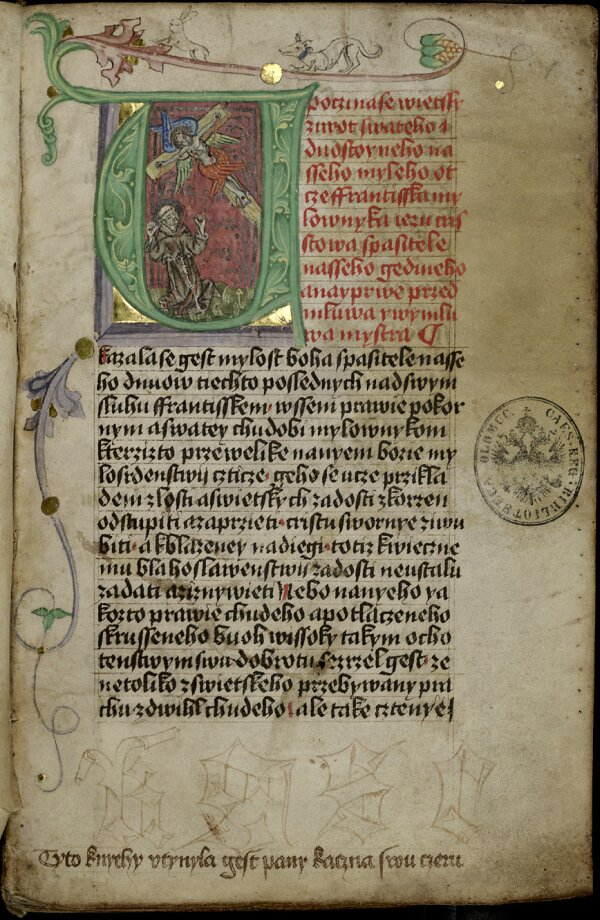 poczinase wietssy
ziwot swateho i
duostoyneho na
sseho myleho ot
cze ffrantisska my
lownyka iezu cris
stowa spasitele
nasseho gedineho
a nayprwe przed
mluwa ywymlu
wa mystra
Kazala se gest mylost boha spasitele nasse
ho dnuow tiechto poslednych nad swym
sluhu ffrantisskem wssem prawie pokor
nym a swatey chudobi mylownykom
kterzizto przewelike na nyem bozie my
losrdenstwij czticze geho se ucze przikla
dem z zlosti a swietskych radosti z korzen
odstupiti a zaprzieti cristu swornye ziwu
biti a k blazeney nadiegi totiz k wieczne
mu blahoslawenstwij zadosti neustalu
zadati a ziznywieti Nebo na nyeho ya
kozto prawie chudeho a potlaczeneho
skrusseneho buoh wissoky takym ocho
tenstwym swu dobrotu sezrzel gest ze
netoliko z swietskeho przebywany pra
chu zdwihl chudeho ale take cztenye
Tyto knyehy vczynyla gest pany kaczna swu czeru
BIBLIOTHECA OLOMUC. CAES. REG.